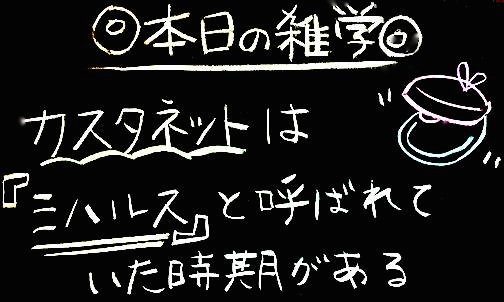 ◎本日の雑学◎
カスタネットは
『ミハルス』と呼ばれて
いた時期がある